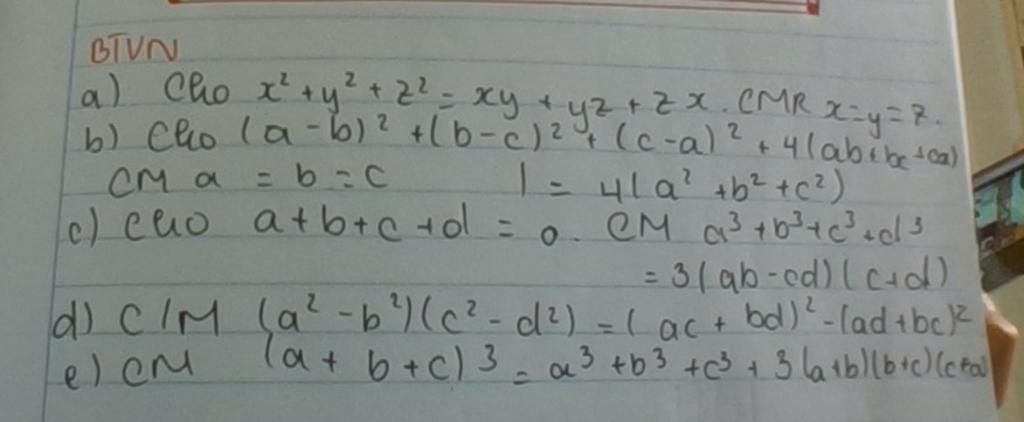 BTVN
a) Cho x² + y² + z² = xy + yz + zx. CMR x=y=z.
b) Cho (a-b)² + (b-c)² + (c-a)² + 4(ab+bc+ca)
CM a = b = c | = 4(a² + b² + c²)
c) Cho a+b+c+d = 0. CM a³+b³+c³+d³
= 3(ab-cd)(c+d)
d) C/M (a² - b²)(c² - d²) = (ac + bd)² - (ad+bc)²
e) CM (a + b + c)³ = a³ + b³ + c³ + 3(a+b)(b+c)(c+a)